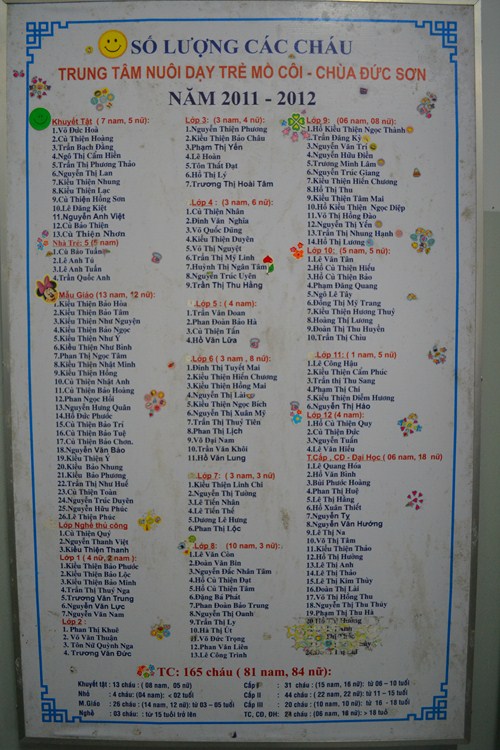 SỐ LƯỢNG CÁC CHÁU
TRUNG TÂM NUÔI DẠY TRẺ MỒ CÔI - CHÙA ĐỨC SƠN
NĂM 2011 - 2012
Khuyết Tật ( 7 nam, 5 nữ):
1.Võ Đức Hoà
2.Cù Thiện Hoàng
3.Trần Bạch Đằng
4.Ngô Thị Cẩm Hiền
5.Trần Thị Phương Thảo
6.Nguyễn Thị Lan
7.Kiều Thiện Nhung
8.Kiều Thiện Lạc
9.Cù Thiện Hồng Sơn
10.Lê Đăng Kiệt
11.Nguyễn Anh Việt
12.Cù Bảo Thiện
13.Cù Thiện Nhơn
Nhà Trẻ: 5 (5 nam)
1.Cù Bảo Tuấn
2.Lê Anh Tú
3.Lê Anh Tuấn
4.Trần Quốc Anh
Mẫu Giáo (13 nam, 12 nữ):
1.Kiều Thiện Bảo Hóa
2.Kiều Thiện Bảo Tâm
3.Kiều Thiện Như Nguyện
4.Kiều Thiện Bảo Ngọc
5.Kiều Thiện Như Ý
6.Kiều Thiện Như Bình
7.Phan Thị Ngọc Tâm
8.Kiều Thiện Nhật Minh
9.Kiều Thiện Hồng
10.Cù Thiện Nhật Anh
11.Cù Thiện Bảo Hoàng
12.Phan Ngọc Hối
13.Nguyễn Hưng Quân
14.Hồ Đức Phước
15.Cù Thiện Bảo Trí
16.Cù Thiện Bảo Tuệ
17.Cù Thiện Bảo Chơn.
18.Nguyễn Văn Bảo
19.Kiều Thiện Ý
20.Kiều Bảo Nhung
21.Kiều Bảo Phương
22.Trần Thị Như Huế
23.Cù Thiện Toàn
24.Nguyễn Trúc Duyên
25.Nguyễn Hữu Phúc
26.Lê Thiện Phúc
Lớp Nghề thủ công
1.Cù Thiện Quý
2.Nguyễn Thanh Việt
3.Kiều Thiện Thanh
Lớp 1 ( 4 nữ, 2 nam ):
1.Kiều Thiện Bảo Phước
2.Kiều Thiện Bảo Lộc
3.Kiều Thiện Bảo Minh
4.Trần Thị Thuý Nga
5.Trương Văn Trung
6.Nguyễn Văn Lực
7.Nguyễn Văn Nam
Lớp 2 :
1. Phan Thị Khuê
2. Võ Văn Thuận
3. Tôn Nữ Quỳnh Nga
4. Trương Văn Đức
Lớp 3: (3 nam, 4 nữ):
1.Nguyễn Thiện Phương
2.Kiều Thiện Bảo Châu
3.Phạm Thị Yến
4.Lê Hoàn
5.Tôn Thất Đạt
6.Hồ Thị Lý
7.Trương Thị Hoài Tâm
Lớp 4 : (3 nam, 6 nữ):
1.Cù Thiện Nhân
2.Đinh Văn Nghĩa
3.Võ Quốc Dũng
4.Kiều Thiện Duyên
5.Võ Thị Nguyệt
6.Trần Thị Mỹ Linh
7.Huỳnh Thị Ngân Tâm
8.Nguyễn Trúc Uyên
9.Trần Thị Thu Hằng
Lớp 5 : ( 4 nam):
1.Trần Văn Doan
2.Phan Đoàn Bảo Hà
3.Cù Thiện Tấn
4.Hồ Văn Lừa
Lớp 6 ( 3 nam , 8 nữ):
1.Đinh Thị Tuyết Mai
2.Kiều Thiện Hiển Chương
3.Kiều Thiện Hồng Mai
4.Nguyễn Thị Lài
5.Kiều Thiện Ngọc Bích
6.Nguyễn Thị Xuân Mỹ
7.Trần Thị Thuỷ Tiên
8.Phan Thị Lịch
9.Võ Đại Nam
10.Trần Văn Khôi
11.Hồ Văn Lung
Lớp 7: ( 3 nam, 3 nữ)
1.Kiều Thiện Linh Chi
2.Nguyễn Thị Tường
3.Lê Tiến Nhân
4.Lê Tiến Thể
5.Dương Lê Hưng
6.Phan Thị Lộc
Lớp 8: (10 nam, 3 nữ):
1.Lê Văn Còn
2.Đoàn Văn Bin
3.Nguyễn Đắc Nhân Tâm
4.Hồ Cù Thiện Đạt
5.Hồ Cù Thiện Tâm
6.Đặng Bá Phát
7.Phan Đoàn Bảo Trung
8.Nguyễn Thị Oanh
9.Trần Thị Ly
10.Hà Thị Út
11.Võ Đức Trọng
12.Phan Văn Liên
13.Lê Công Trình
Lớp 9: (06 nam, 08 nữ):
1.Hồ Kiều Thiện Ngọc Thành
2.Trần Đăng Kỳ
3.Nguyễn Văn Trí
4.Nguyễn Hữu Điền
5.Trương Minh Lâm
6.Nguyễn Trúc Giang
7.Kiều Thiện Hiển Chương
8.Hồ Thị Thu
9.Kiều Thiện Tâm Mai
10.Hồ Kiều Thiện Ngọc Diệp
11.Võ Thị Hồng Đào
12.Nguyễn Thị Yến
13.Trần Thị Nhung Hạnh
14.Hồ Thị Lương
Lớp 10: (5 nam, 5 nữ):
1.Lê Văn Tân
2.Hồ Cù Thiện Hiếu
3.Hồ Cù Thiện Bảo
4.Phạm Đăng Quang
5.Ngô Lê Tây
6.Đồng Thị Mỹ Trang
7.Kiều Thiện Hương Thuỷ
8.Hoàng Thị Lương
9.Đoàn Thị Thu Huyền
10.Trần Thị Chiu
Lớp 11: ( 1 nam, 5 nữ)
1.Lê Công Hậu
2.Kiều Thiện Cẩm Phúc
3.Trần thị Thu Sang
4.Phạm Thị Chi
5.Kiều Thiện Diễm Hương
6.Nguyễn Thị Hảo
Lớp 12 (4 nam):
1.Hồ Cù Thiện Quý
2.Cù Thiện Đức
3.Nguyễn Tuấn
4.Lê Văn Hiếu
T.Cấp , CĐ - Đại Học ( 06 nam, 18 nữ)
1.Lê Quang Hóa
2.Hồ Văn Bình
3.Bùi Phước Hoàng
4.Phan Thị Huệ
5.Lê Thị Hằng
6.Hồ Xuân Thiết
7.Nguyễn Tý
8.Nguyễn Văn Hướng
9.Lê Thị Na
10.Võ Thị Tâm
11.Kiều Thiện Thảo
12.Hồ Thị Hường
13.Lê Thị Anh
14.Lê Thị Thảo
15.Lê Thị Kim Thủy
16.Đoàn Thị Lài
17.Võ Thị Hồng Thu
18.Nguyễn Thị Thu Thủy
19.Phan Thị Thu Hà
TC: 165 cháu ( 81 nam, 84 nữ):
Khuyết tật : 13 cháu : ( 08 nam, 05 nữ) Cấp I : 31 cháu (15 nam, 16 nữ): từ 06 – 10 tuổi
Nhỏ : 4 cháu: (04 nam): < 02 tuổi Cấp II : 44 cháu (22 nam, 22 nữ): từ 11 – 15 tuổi
M.Giáo : 26 cháu (14 nam, 12 nữ): từ 03 – 05 tuổi Cấp III : 20 cháu (10 nam, 10 nữ): từ 16 - 18 tuổi
Nghề : 03 cháu: từ 15 tuổi trở lên TC, CĐ, ĐH: 24 cháu (06 nam, 18 nữ): > 18 tuổi